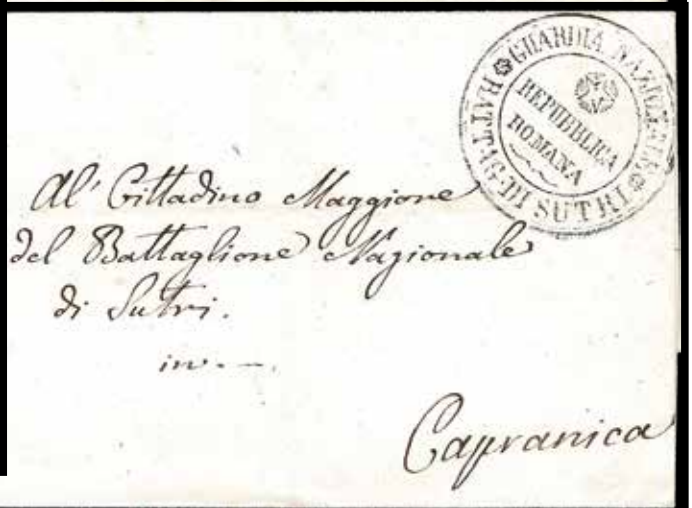 GUARDIA NAZIONALE
BATT.E DI SUTRI
REPUBBLICA
ROMANA
Al' Cittadino Maggiore
del Battaglione Nazionale
di Sutri.
in - - -.
Capranica